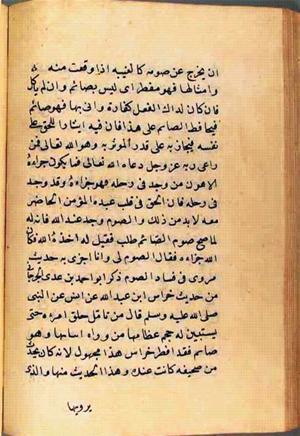 ان يخرج عن صومه كالغيبة اذا وقعت منه
وامثالها فهو مفطر اى ليس بصائم وان لم ياكل
فان كان لذاك الفعل كفارة واتى بها فهو صائم
فيحافظ الصائم على هذا فان فيه ايثارا للحق على
نفسه فيجازيه على قدر الموثر به وهو الله تعالى فمن
راعى ربه عز وجل دعاه الله تعالى فما يكون جزاءه
الا هو من وجد فى رحله فهو جزاءه وقد وجد
فى رحله فان الحق فى قلب عبده المؤمن الحاضر
معه لا بد من ذلك والصوم وجد عند الله فانه له
لما صح صوم الصائم طلب فقيل له اخذه الله فكان
الله جزاءه فقال الصوم لى وانا اجزى به حديث
مروى فى فساد الصوم ذكر ابو احمد بن عدى الجرجانى
من حديث خراس ابن عبد الله عن انس عن النبى
صلى الله عليه وسلم قال من تامل خلق امرءة حتى
يستبين له حجم عظامها من وراء ثيابها وهو
صائم فقد افطر خراس هذا مجهول لانه كان يحدث
من صحيفه كانت عنده وهذا الحديث منها والذى
يرويها